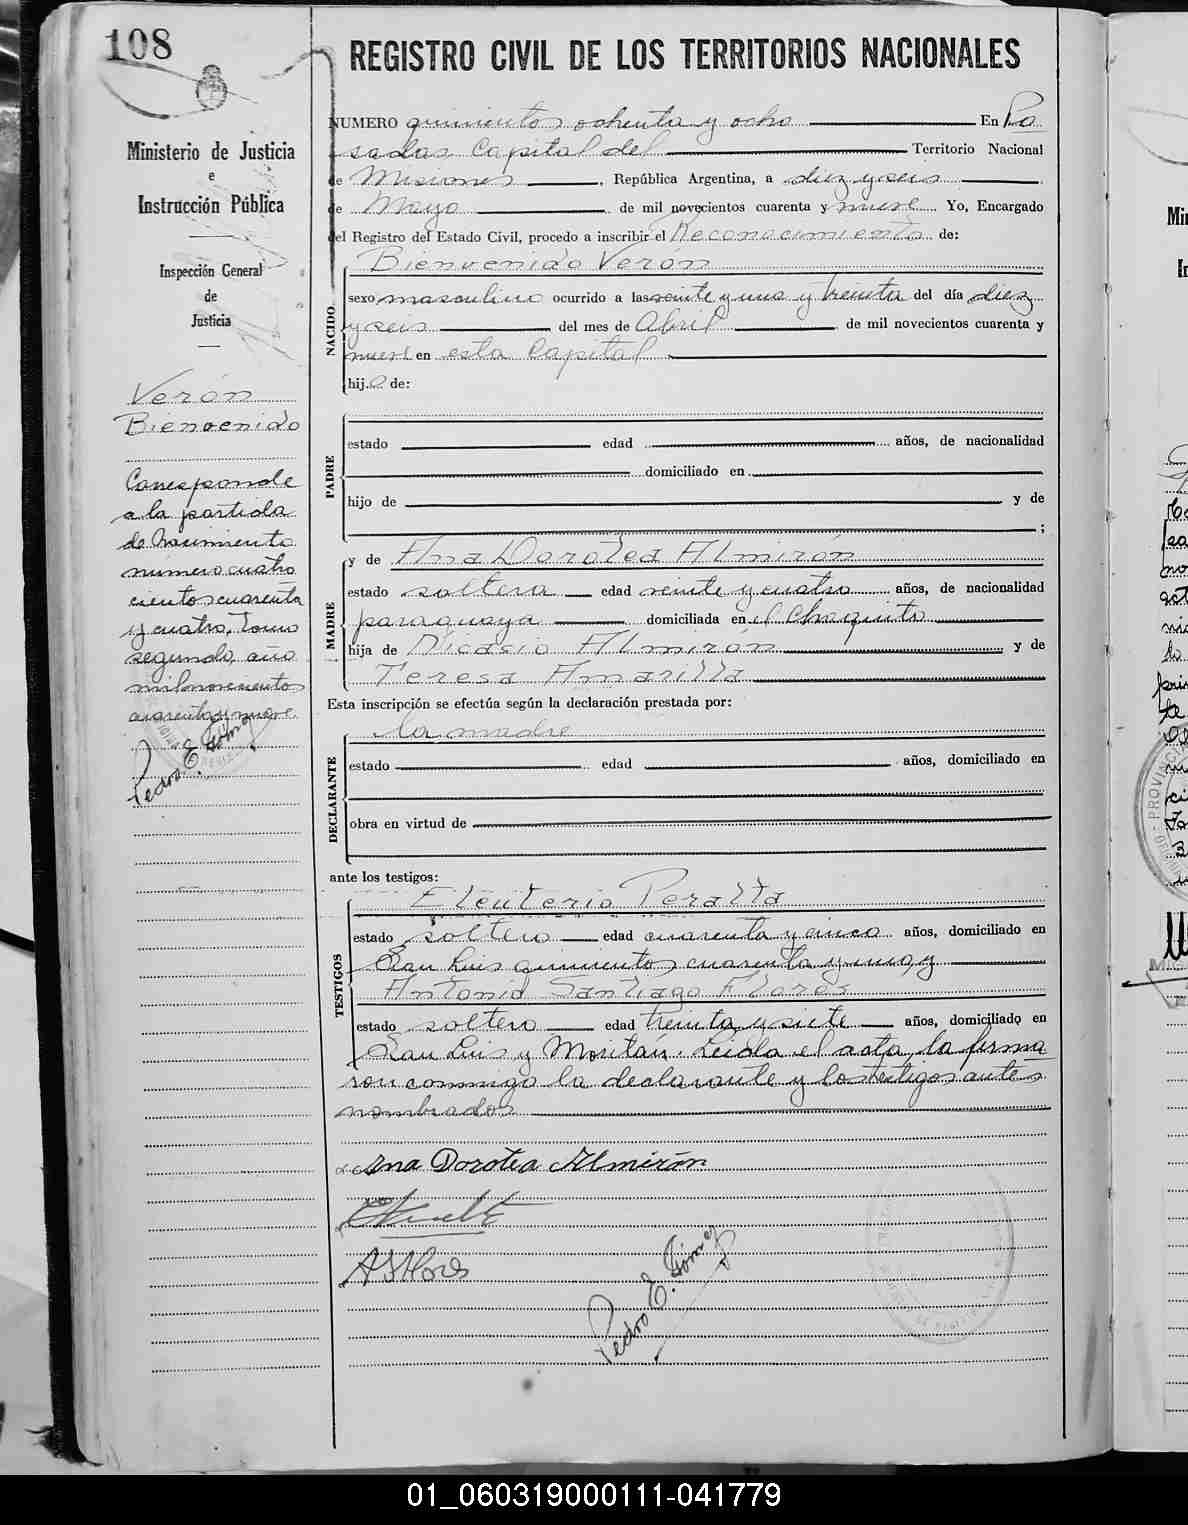 108
REGISTRO CIVIL DE LOS TERRITORIOS NACIONALES
Ministerio de Justicia
e
Instrucción Pública
Inspección General
de
Justicia
Verón
Bienvenido
Corresponde
a la partida
de Nacimiento
número cuatro
cientos cuarenta
y cuatro, Tomo
segundo, año
mil novecientos
cuarenta y nueve.
Pedro E. Gómez
NUMERO quinientos ochenta y ocho En Po
sadas Capital del Territorio Nacional
de Misiones, República Argentina, a diez y seis
de Mayo de mil novecientos cuarenta y nueve Yo, Encargado
del Registro del Estado Civil, procedo a inscribir el Reconocimiento de:
NACIDO
Bienvenido Verón
sexo masculino ocurrido a las veinte y una y treinta del día diez
y seis del mes de Abril de mil novecientos cuarenta y
nueve en esta Capital
hijo de:
PADRE
estado edad años, de nacionalidad
domiciliado en
hijo de y de
;
MADRE
y de Ana Dorotea Almirón
estado soltera edad veinte y cuatro años, de nacionalidad
paraguaya domiciliada en el Chaquito
hija de Nicasio Almirón y de
Teresa Amarilla
Esta inscripción se efectúa según la declaración prestada por:
DECLARANTE
la madre
estado edad años, domiciliado en
obra en virtud de
ante los testigos:
TESTIGOS
Eleuterio Peralta
estado soltero edad cuarenta y cinco años, domiciliado en
San Luis quinientos cuarenta y uno, y
Antonio Santiago Flores
estado soltero edad treinta y siete años, domiciliado en
San Luis y Moritán. Leída el acta, la firma
ron conmigo la declarante y los testigos antes
nombrados
Ana Dorotea Almirón
A S Flores
Pedro E. Gómez
01_060319000111-041779